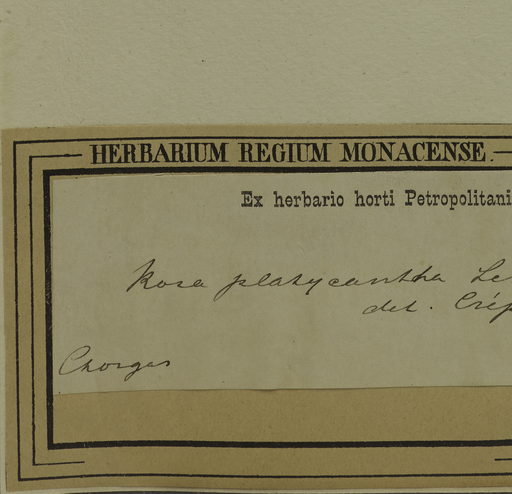 HERBARIUM REGIUM MONACENSE.
Ex herbario horti Petropolitani
Rosa platycantha Le
det. Crép
Chorgas